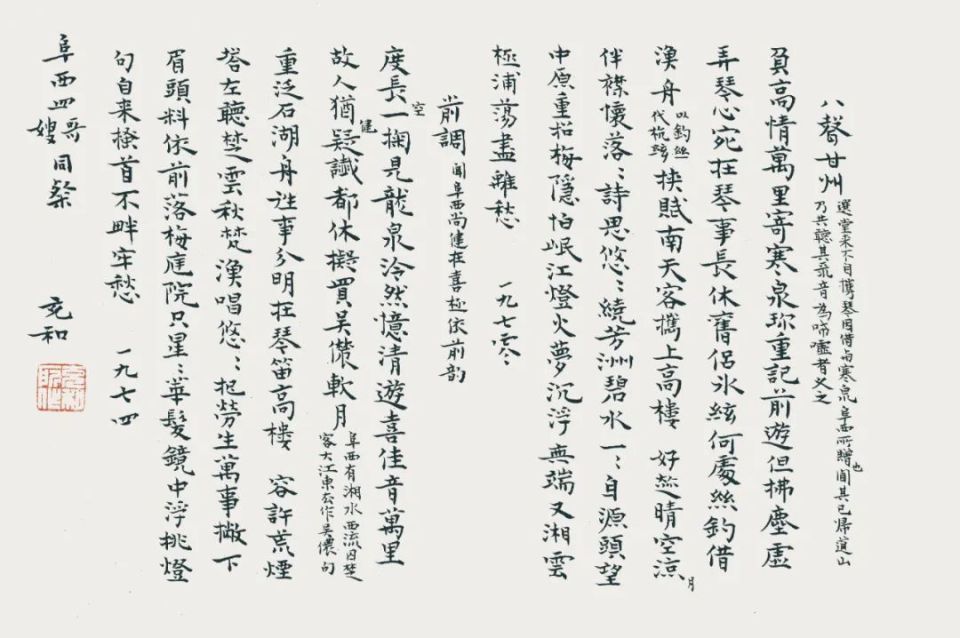 八聲甘州 選堂來不自攜琴因借与寒泉阜西所贈也聞其已歸道山
乃共聽其飛音為啼噓者久之
負高情萬里寄寒泉珎重記前遊但拂塵虛
弄琴心宛在琴事長休舊侶冰絃何處絲釣借
漁舟 以釣絲代絃 挾賦南天客攜上高樓 好趂晴空涼月
伴襟懷落〻詩思悠〻繞芳洲碧水一〻自源頭望
中原重招梅隱怕岷江燈火夢沉浮無端又湘雲
極浦蕩盡離愁 一九七零
前調 聞阜西尚健在喜極依前韵
度長空一掬是龍泉泠然憶清遊喜佳音萬里
故人猶健疑讖都休擬買吳儂軟月 阜西有湘水西流因楚客大江東去作吳儂句
重泛石湖舟往事分明在琴笛高樓 容許荒煙
塔左聽楚雲秋梵漁唱悠〻把勞生萬事撇下
眉頭料依前落梅庭院只星〻華髮鏡中浮挑燈
句自來搔首不畔牢愁 一九七四
阜西四哥嫂同粲
充和